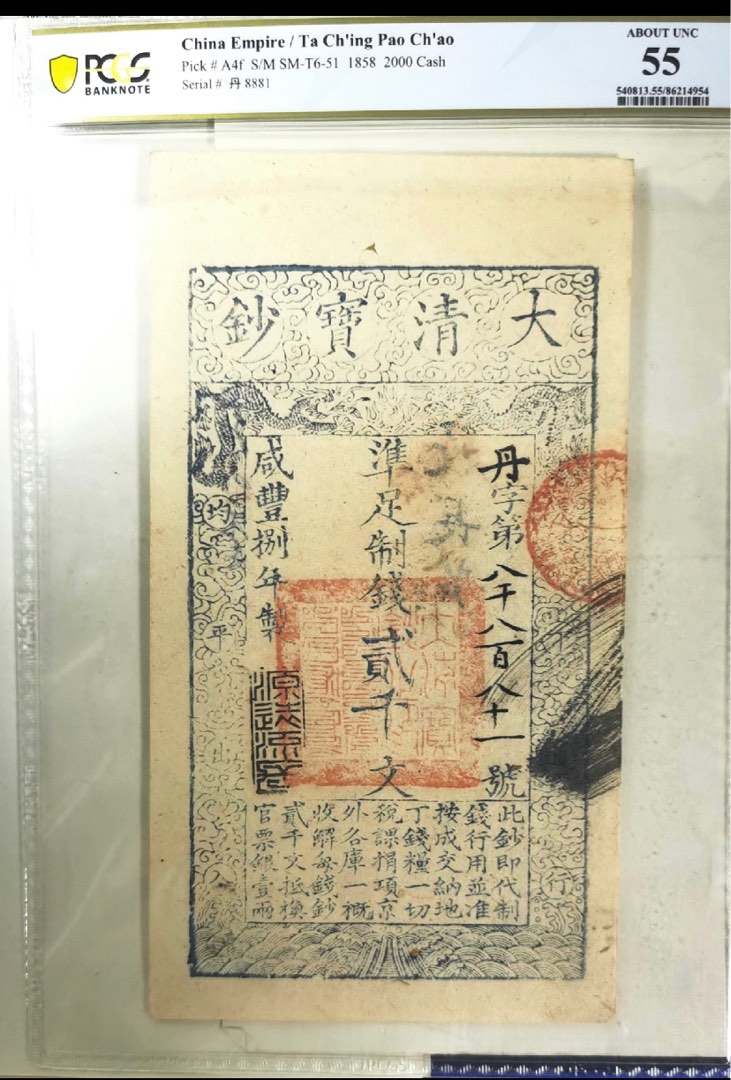 PCGS
BANKNOTE
China Empire / Ta Ch'ing Pao Ch'ao
Pick # A4f S/M SM-T6-51 1858 2000 Cash
Serial # 丹 8881
ABOUT UNC
55
540813.55/86214954
大清寶鈔
丹字第八千八百八十一號
準足制錢貳千文
咸豐捌年製
均
平
行
此鈔即代制
錢行用並准
按成交納地
丁錢糧一切
稅課捐項京
外各庫一概
收解每錢鈔
貳千文抵換
官票銀壹兩